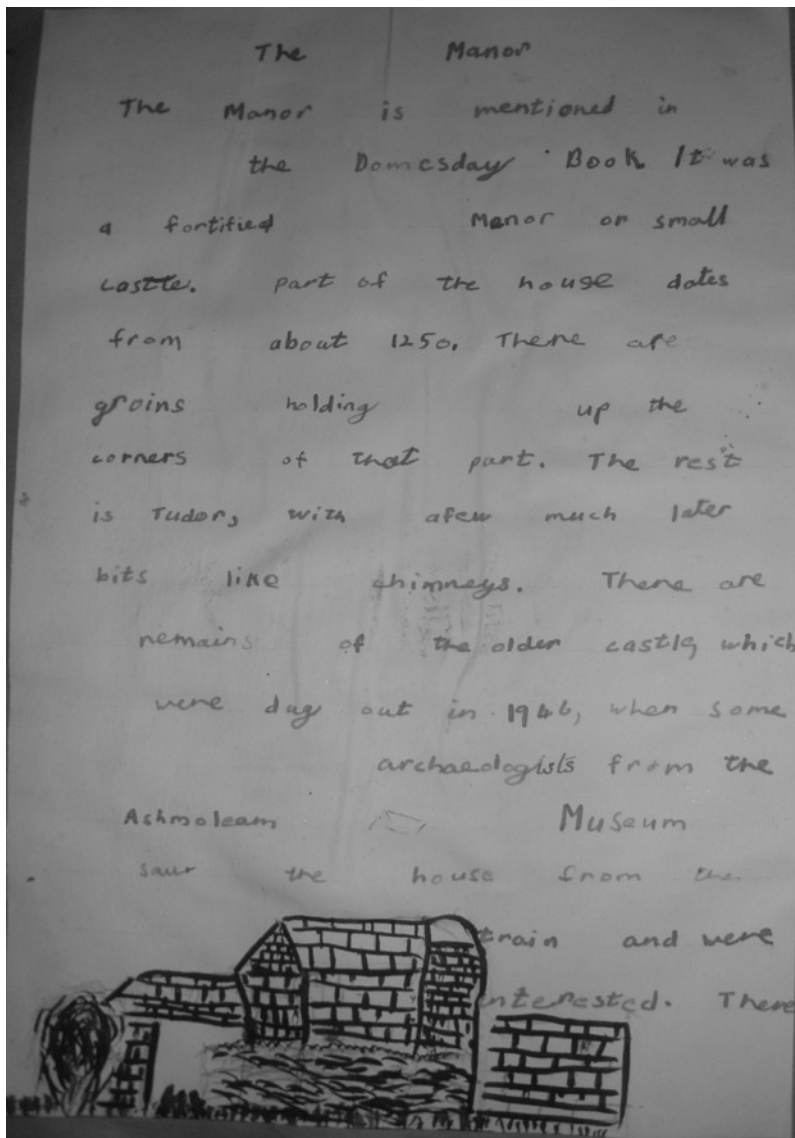 The Manor
The Manor is mentioned in
the Domesday Book. It was
a fortified Manor or small
castle. part of the house dates
from about 1250. There are
groins holding up the
corners of that part. The rest
is Tudor, with afew much later
bits like chimneys. There are
remains of the older castle, which
were dug out in 1946, when some
archaeologists from the
Ashmoleam Museum
saur the house from the
train and were
interested. There